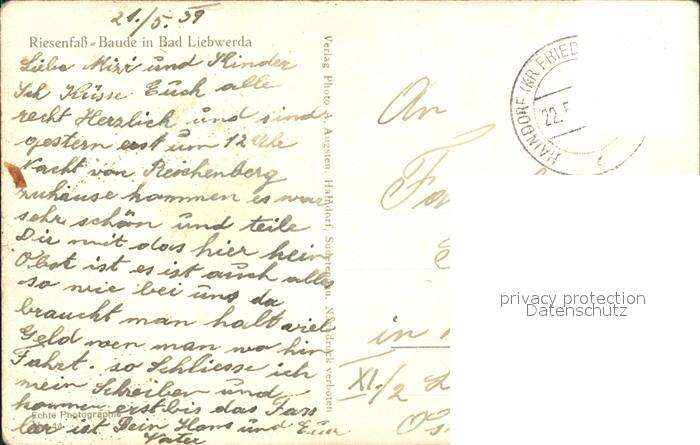 21./5. 39
Riesenfaß-Baude in Bad Liebwerda
Liebe Mizi und Kinder
Ich Küsse Euch alle
recht Herzlich und sind
gestern erst um 12 Uhr
Nacht von Reichenberg
zuhause kommen es war
sehr schön und teile
Dir mit das hier kein
Obst ist es ist auch alles
so wie bei uns da
braucht man halt viel
Geld wen man wo hin
Fahrt. so Schliesse ich
mein Schreiben und
komme erst bis das Fass
leer ist Dein Hans und Euer
Vater
Echte Photographie
Verlag Photo A. Augsten, Haindorf, Sudetengau. Nachdruck verboten
An
Fa
in
XI./2
HAINDORF (KR FRIED
22.5
privacy protection
Datenschutz